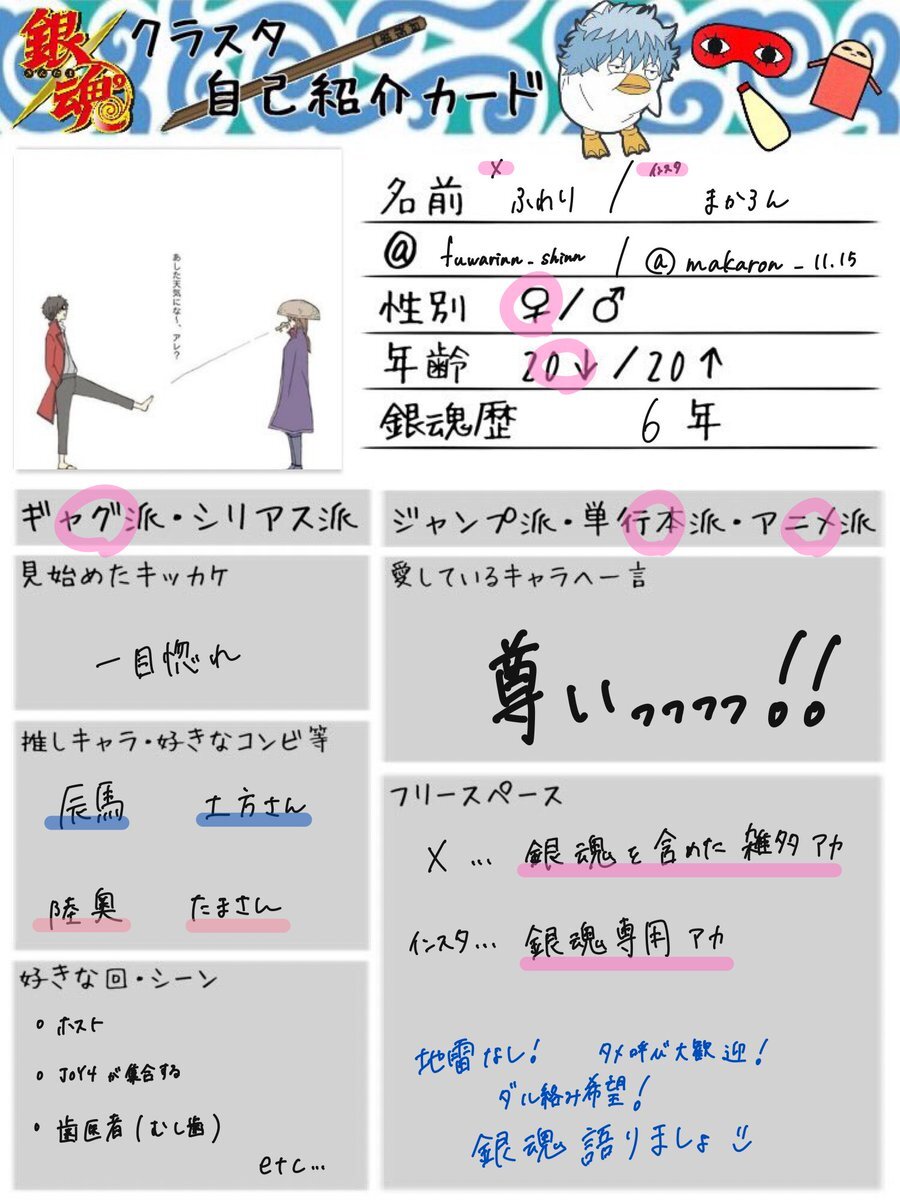 銀魂
ぎんたま
クラスタ
自己紹介カード
あした天気にな〜、アレ?
X インスタ
名前 ふわり / まかろん
@ fuwarinn_shinn / @ makaron_11.15
性別 ♀/♂
年齢 20↓/20↑
銀魂歴 6年
ギャグ派・シリアス派
ジャンプ派・単行本派・アニメ派
見始めたキッカケ
一目惚れ
愛しているキャラへ一言
尊いっっっっ!!
推しキャラ・好きなコンビ等
辰馬 土方さん
陸奥 たまさん
好きな回・シーン
• ホスト
• JOY4が集合する
• 歯医者(むし歯)
etc...
フリースペース
X... 銀魂を含めた雑多アカ
インスタ... 銀魂専用アカ
地雷なし! タメ呼び大歓迎!
ダル絡み希望!
銀魂語りましょ